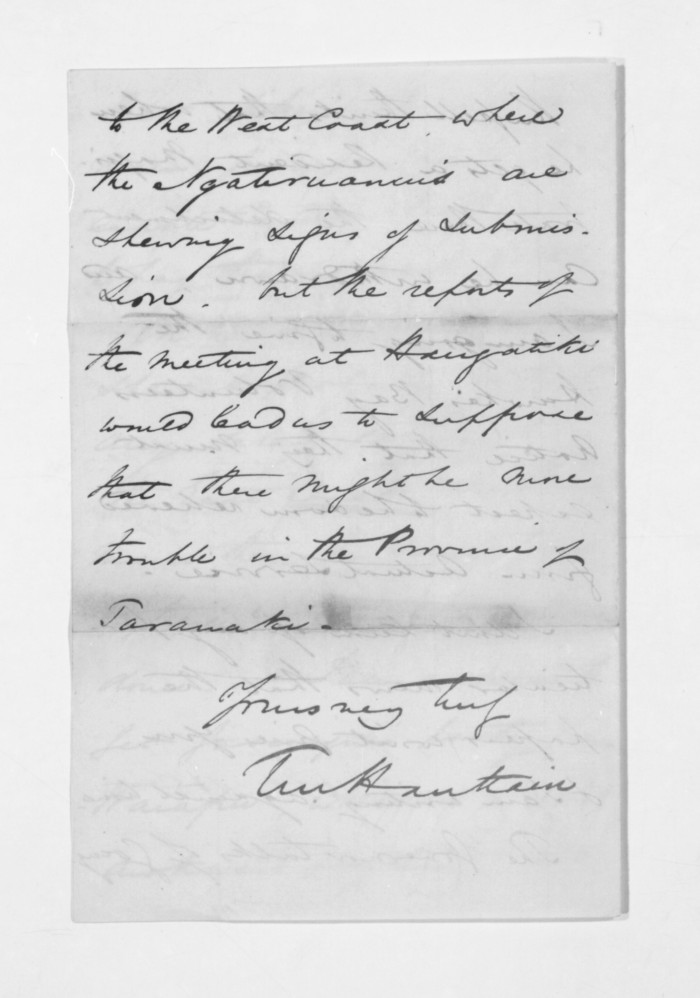 to the West Coast. where
the Ngatiruanuis are
shewing signs of submis-
sion. but the reports of
the meeting at Haugatiki
would lead us to suppose
that there might be more
trouble in the Province of
Taranaki -
Yours very truly
Haultain